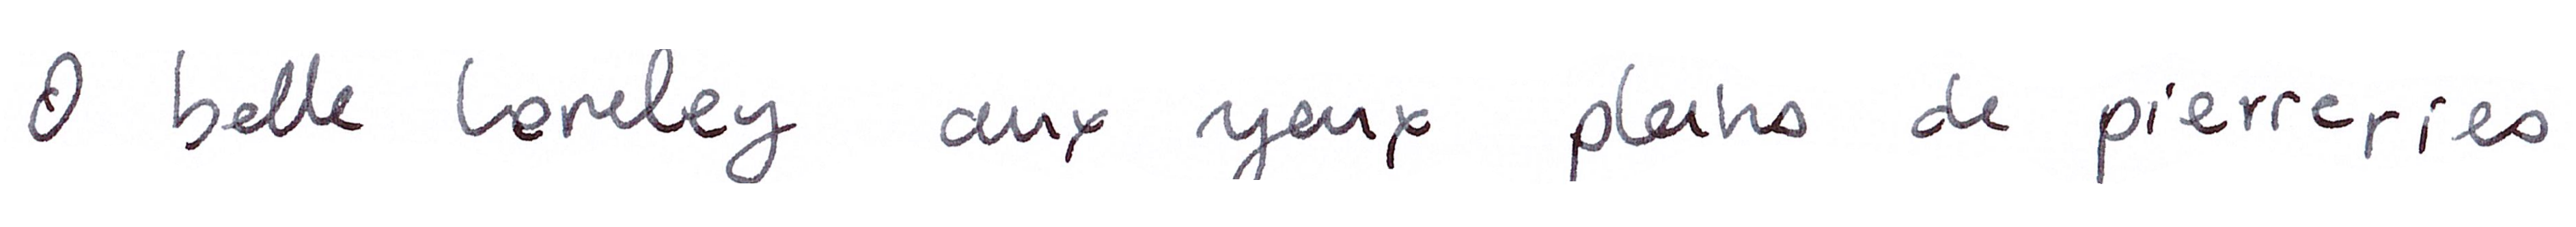 O belle Loreley aux yeux pleins de pierreries